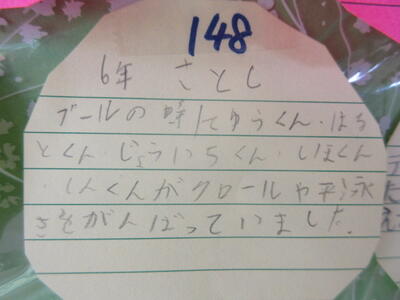 148
6年 さとし
プールの時にゆうくん・はる
とくん・じょういちくん・しほくん
・しんくんがクロールや平泳
ぎをがんばっていました。